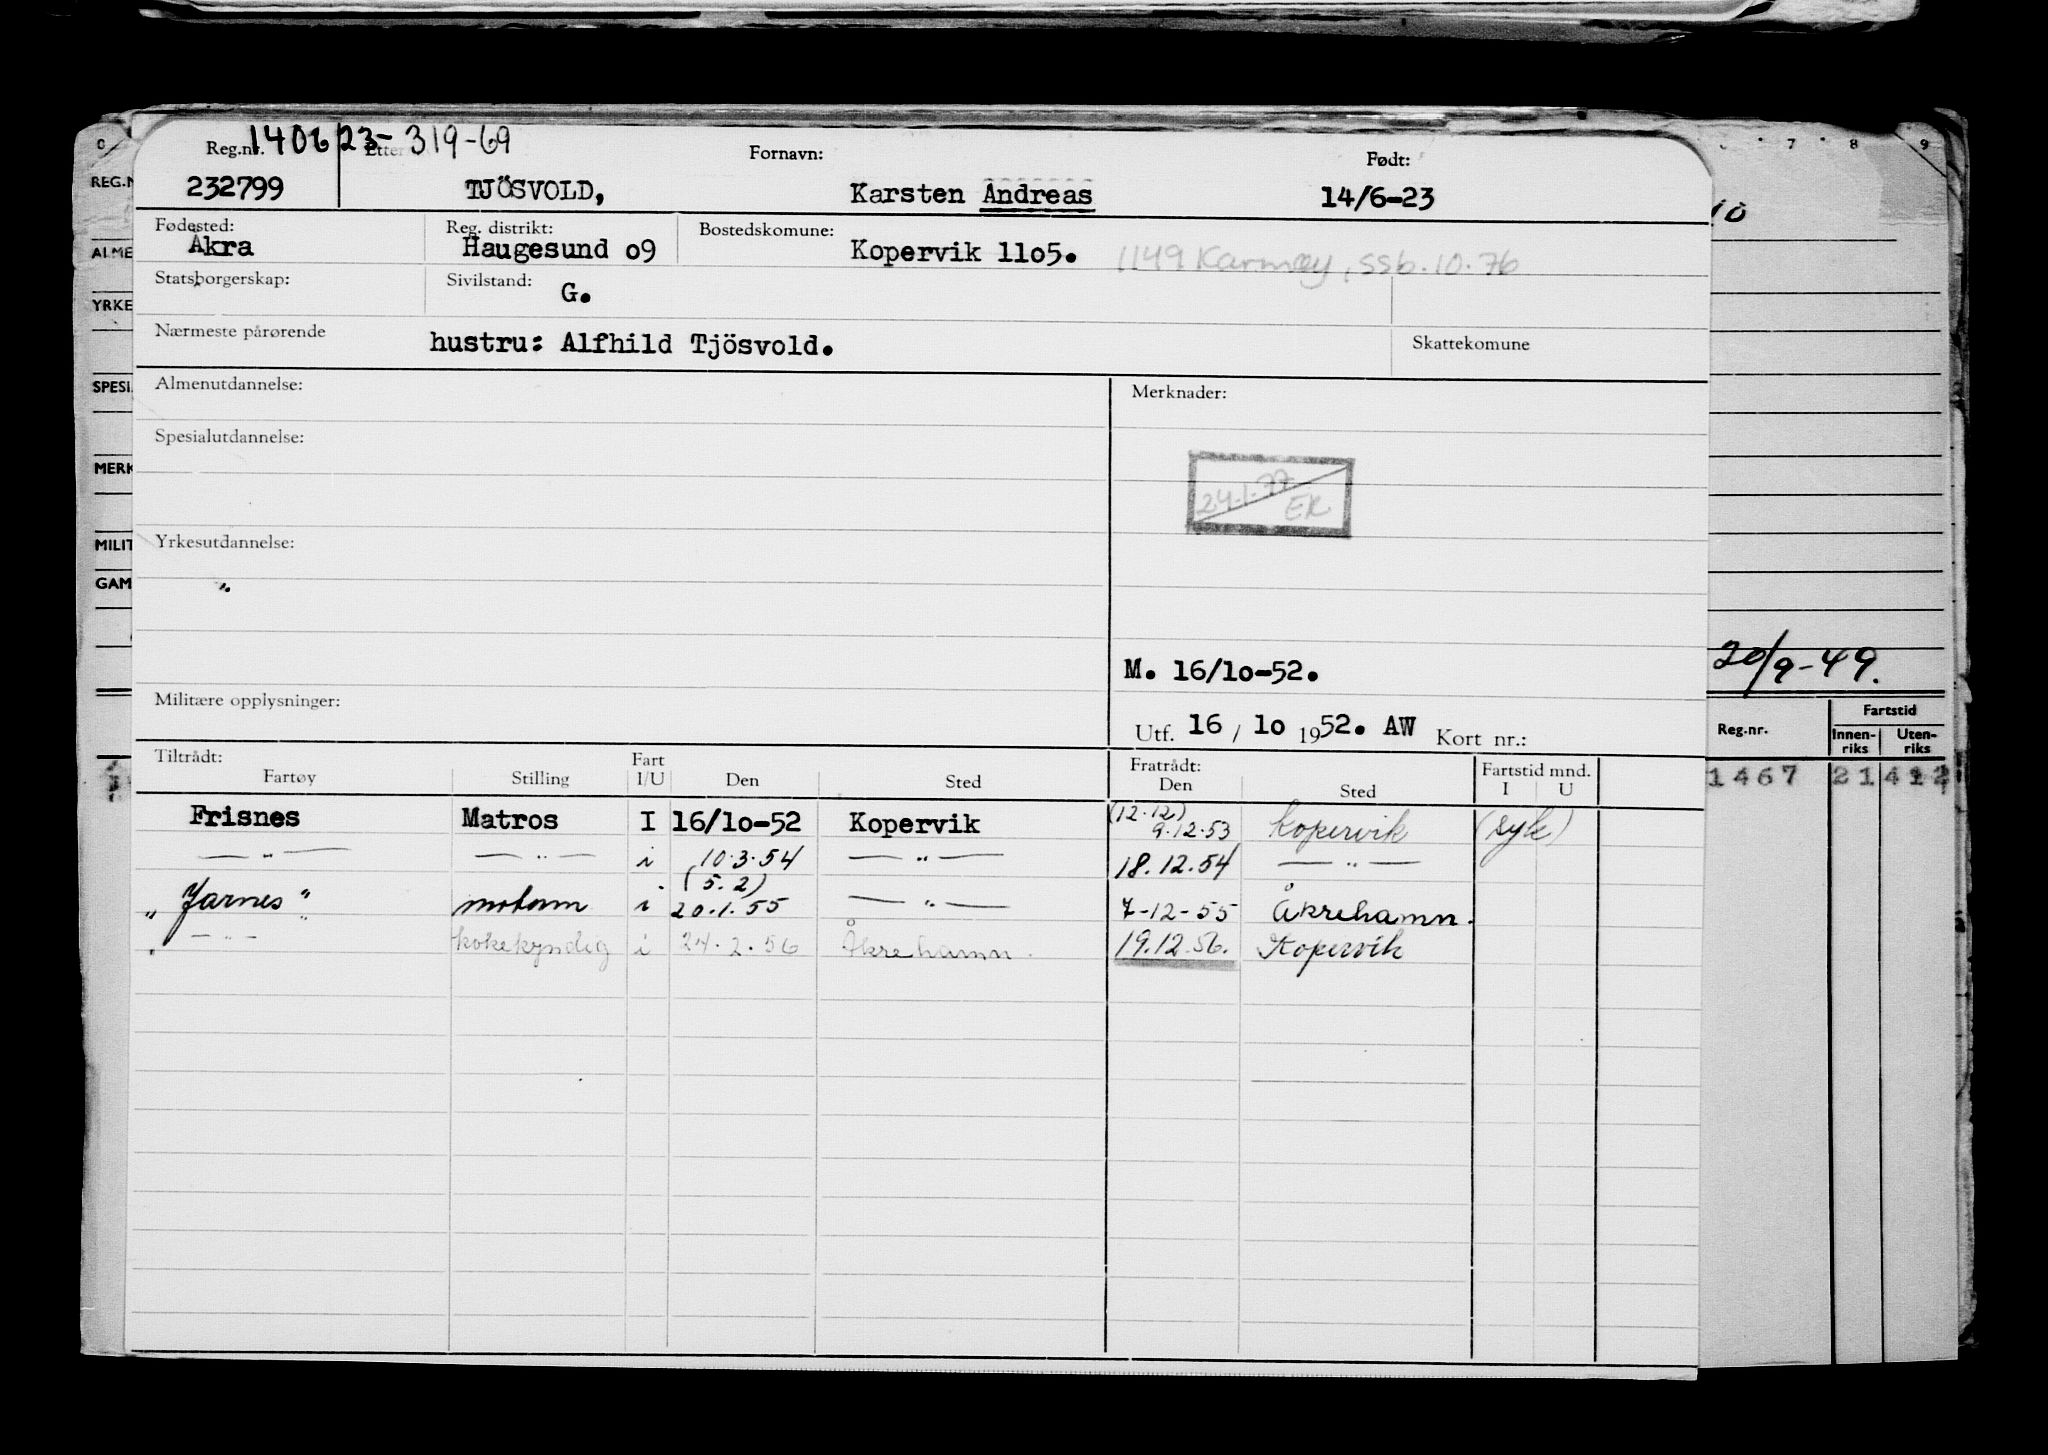 0 7 8 9
Reg.nr. 140623-319-69 Fornavn: Født:
REG.N
232799 TJÖSVOLD, Karsten Andreas 14/6-23
Fødested: Reg. distrikt: Bostedskomune:
ALME Åkra Haugesund o9 Kopervik 11o5. 1149 Karmøy, ssb. 10.76
Statsborgerskap: Sivilstand: G.
YRKE
Nærmeste pårørende hustru: Alfhild Tjösvold. Skattekomune
SPESI
Almenutdannelse: Merknader:
Spesialutdannelse:
MERK
24.1.77 EK
MILIT
Yrkesutdannelse:
GAM
"
M. 16/1o-52. 20/9-49.
Militære opplysninger:
Utf. 16 / 1o 1952. AW Kort nr.:
Reg.nr. Fartstid
Innen-riks Uten-riks
Tiltrådt: Fart Fratrådt: Fartstid mnd.
Fartøy Stilling I/U Den Sted Den Sted I U
1467 21 412
Frisnes Matros I 16/1o-52 Kopervik (12.12) 9.12.53 Kopervik (syk)
— " — — " — i 10.3.54 — " — 18.12.54 — " —
"Jarnes" motorm i (5.2) 20.1.55 — " — 7-12-55 Åkrehamn.
" — " — kokekyndig i 24.2.56 Åkrehamn. 19.12.56. Kopervik